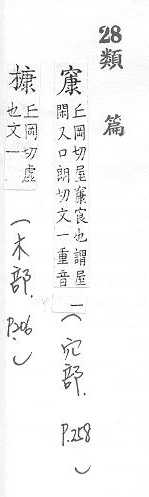 28 類篇
丘岡切屋也謂屋
閑又口朗切文一重音一
(穴部. P.258)
槺
丘岡切虛
也文一
(木部. P.206.)